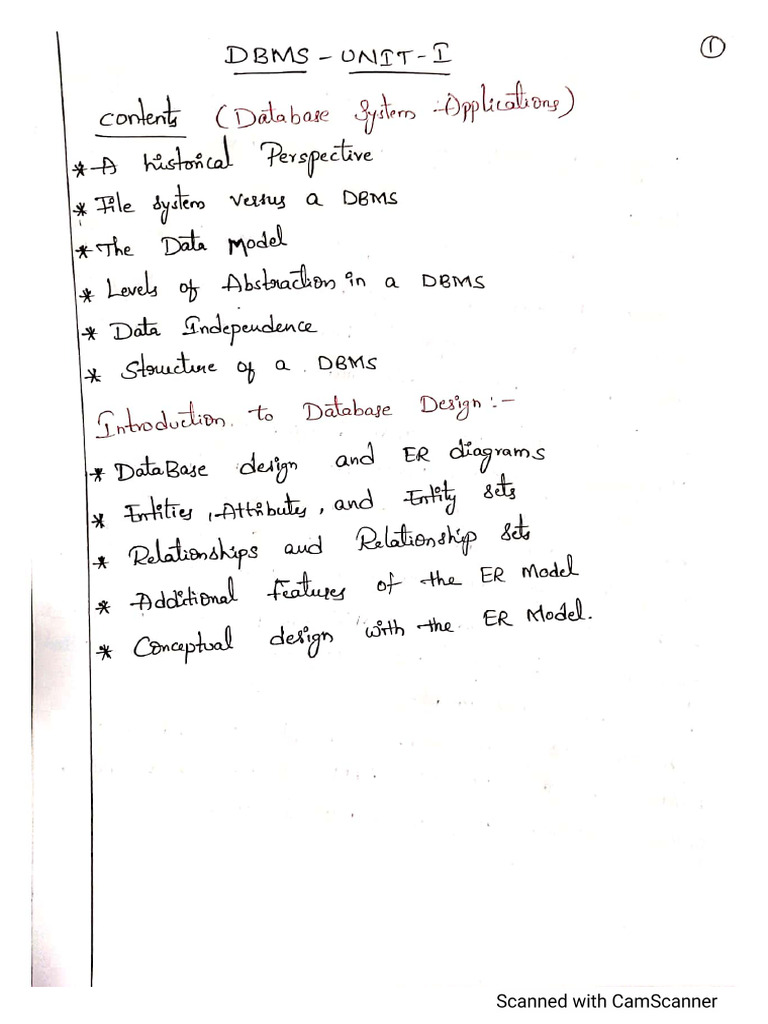 DBMS - UNIT - I
①
Contents (Database System Applications)
* A historical Perspective
* File system versus a DBMS
* The Data Model
* Levels of Abstraction in a DBMS
* Data Independence
* Structure of a DBMS
Introduction to Database Design :-
* DataBase design and ER diagrams
* Entities, Attributes, and Entity sets
* Relationships and Relationship sets
* Additional features of the ER Model
* Conceptual design with the ER Model.
Scanned with CamScanner